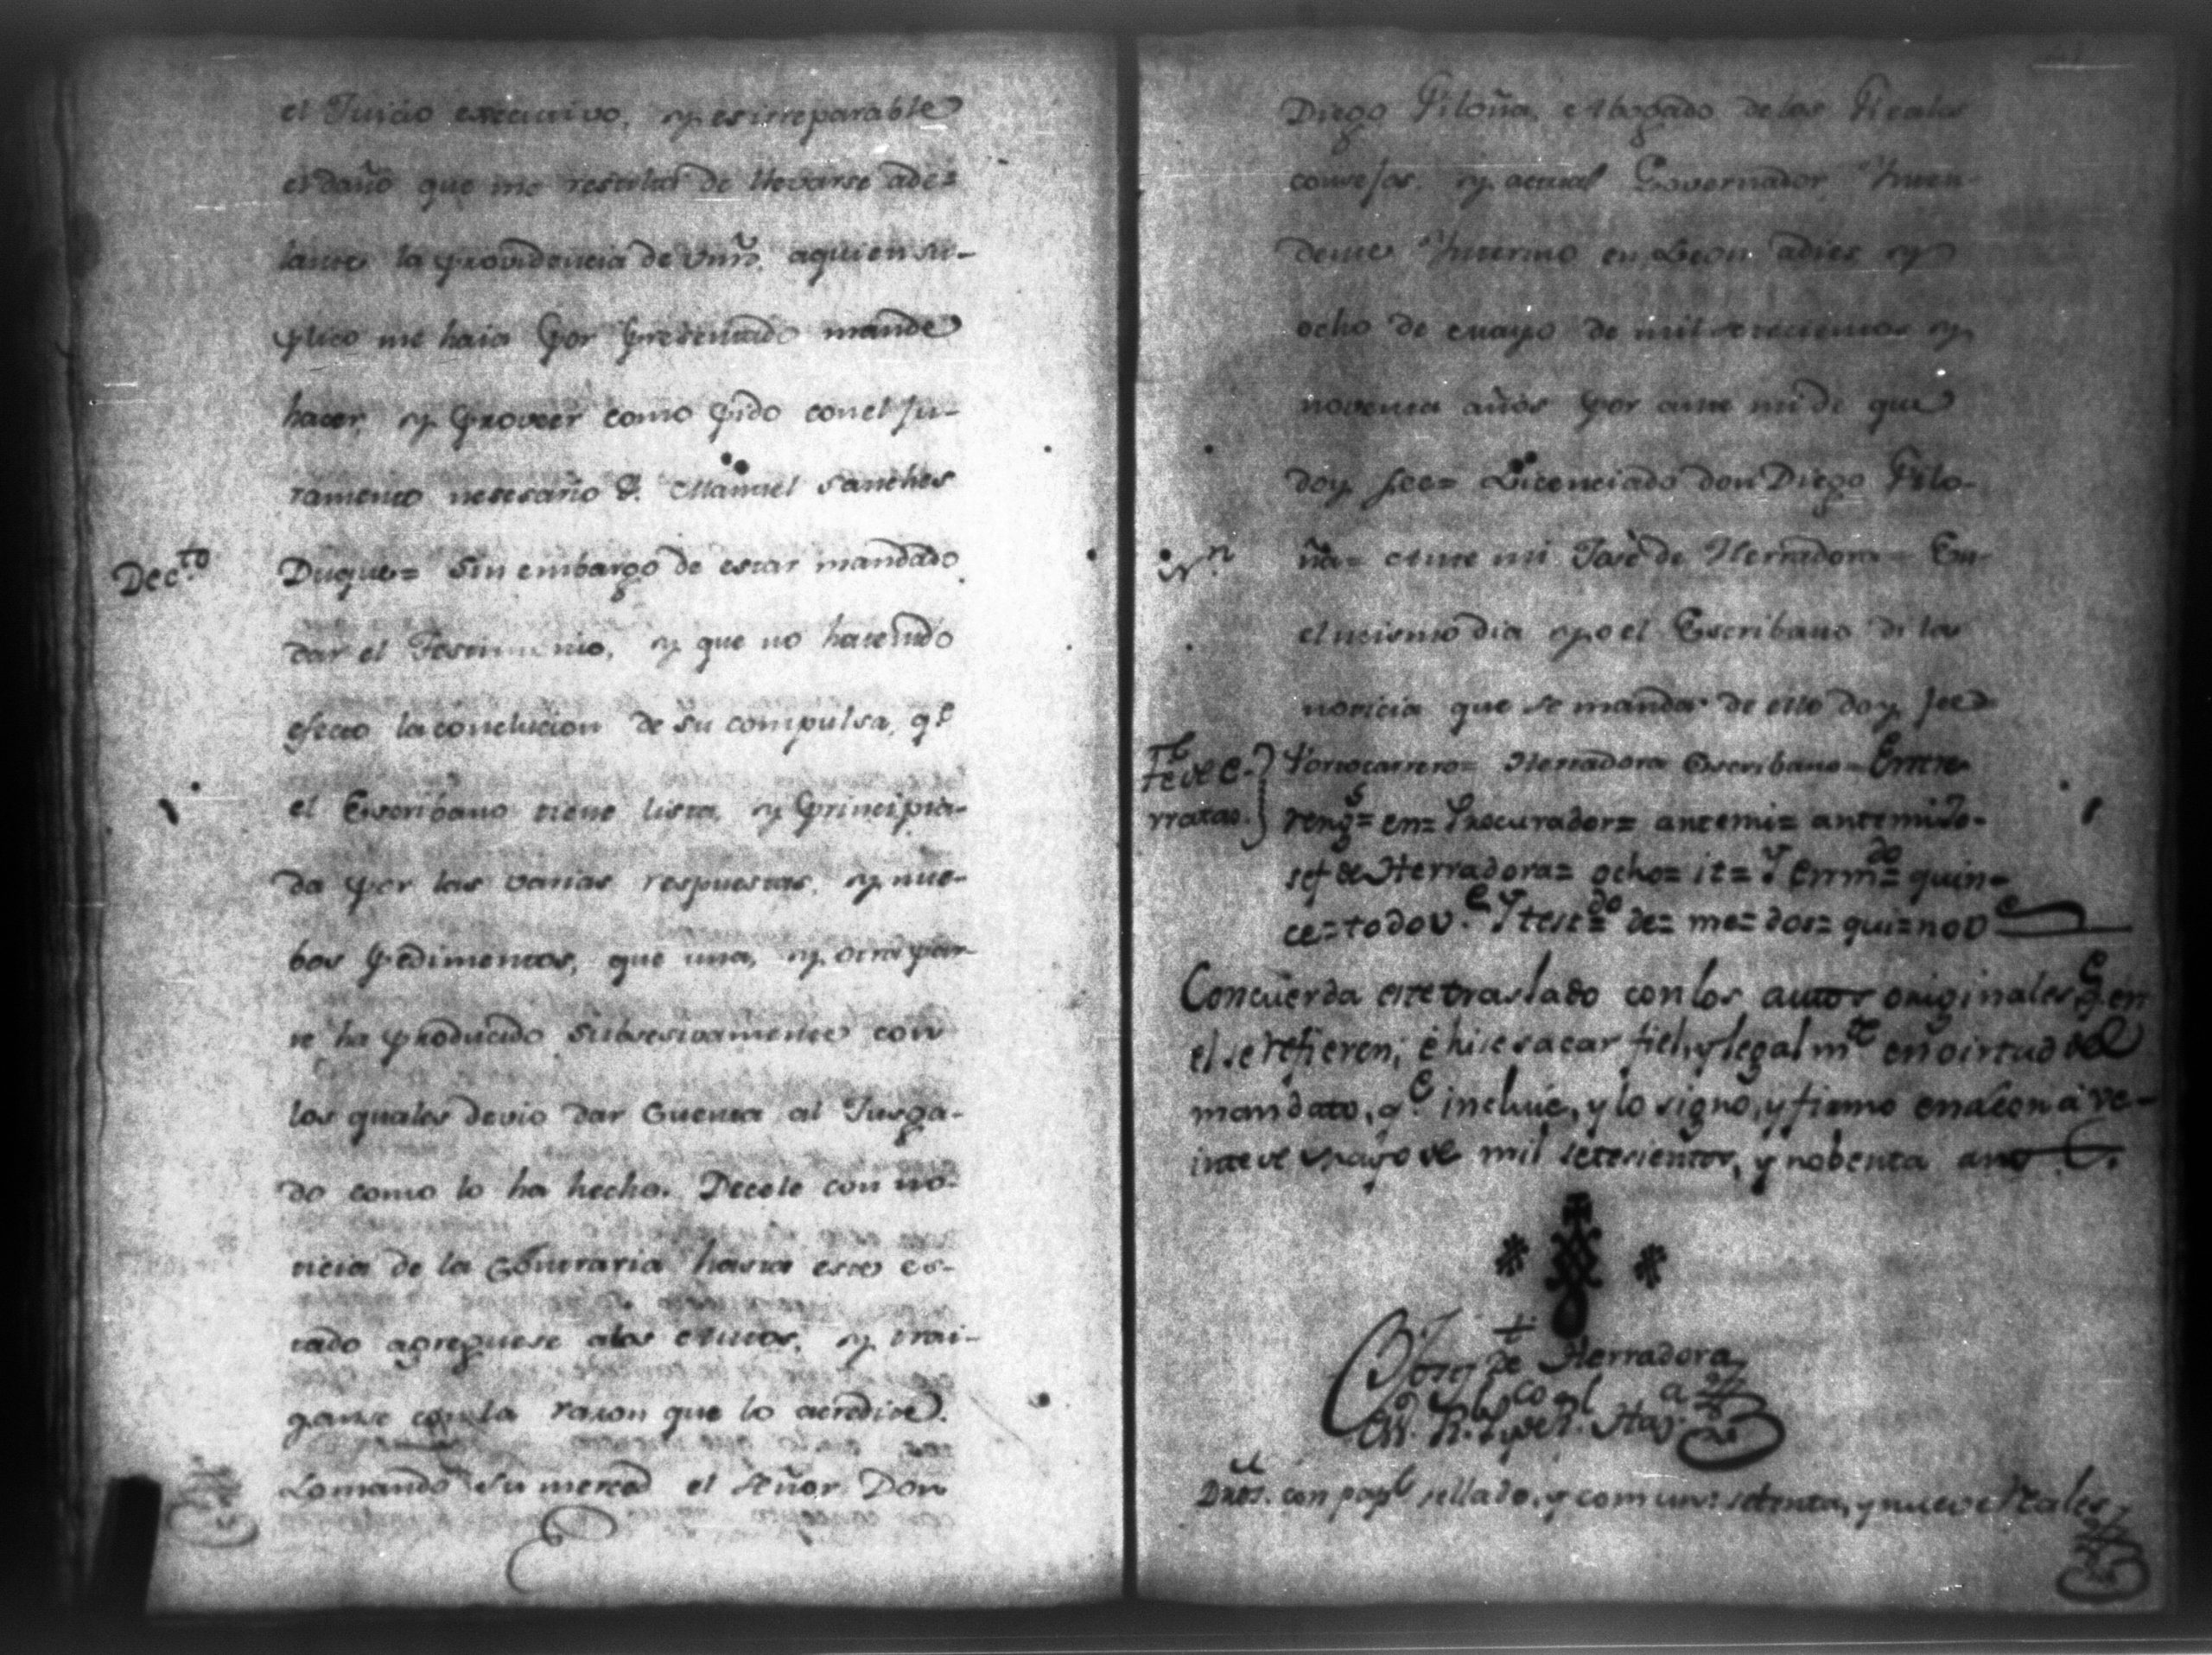 el Juicio executivo, y es irreparable
el daño que me resulta de llevarse ade=
lante la providencia de Vm̃. aquien su-
plico me haia por presentado mande
hacer, y proveer como pido con el ju-
ramento nesesario &. Manuel Sanches
Dec.to
Duque= Sin embargo de estar mandado
dar el Testimonio, y que no haciendo
efecto la conclucion de su compulsa, q.e
el Escribano tiene lista, y principia-
da por las varias respuestas, y nue-
bos pedimentos, que una, y otra par-
te ha producido subsesivamente con
los quales devio dar Cuenta al Jusga-
do como lo ha hecho. Decele con no-
ticia de la Contraria hasta este es-
tado agreguese a los Autos, y trai-
ganse con la rason que lo acredite.
Lo mandó su merced el Señor Don
Diego Piloña, Abogado de los Reales
consejos, y actual Governador Inten-
dente Interino en Leon a dies y
ocho de Mayo de mil setecientos y
noventa años por ante mi de que
doy fee= Licenciado don Diego Pilo-
ña= Ante mi José de Herradora= En
el mismo dia yo el Escribano di la
noticia que se manda de ello doy fee=
Fe de e-
rratas.
Portocarrero= Herradora Escribano= Entre
reng.s= en= Procurador= antemi= antemi Jo-
sef de Herradora= ocho= it= Y Enm.do= quin-
ce= todo v.e Y test.do= de= me= dos= qui= no v
Concuerda este traslado con los autos originales q.e en
el se refieren; é hice sacar fiel, y legal m.te en virtud del
mandato, q.e incluie, y lo signo, y firmo en Leon á ve-
inte de Mayo de mil setesientos, y nobenta an.s
Josef de Herradora
Dños. con papl sellado, y comun: setenta, y nueve Reales